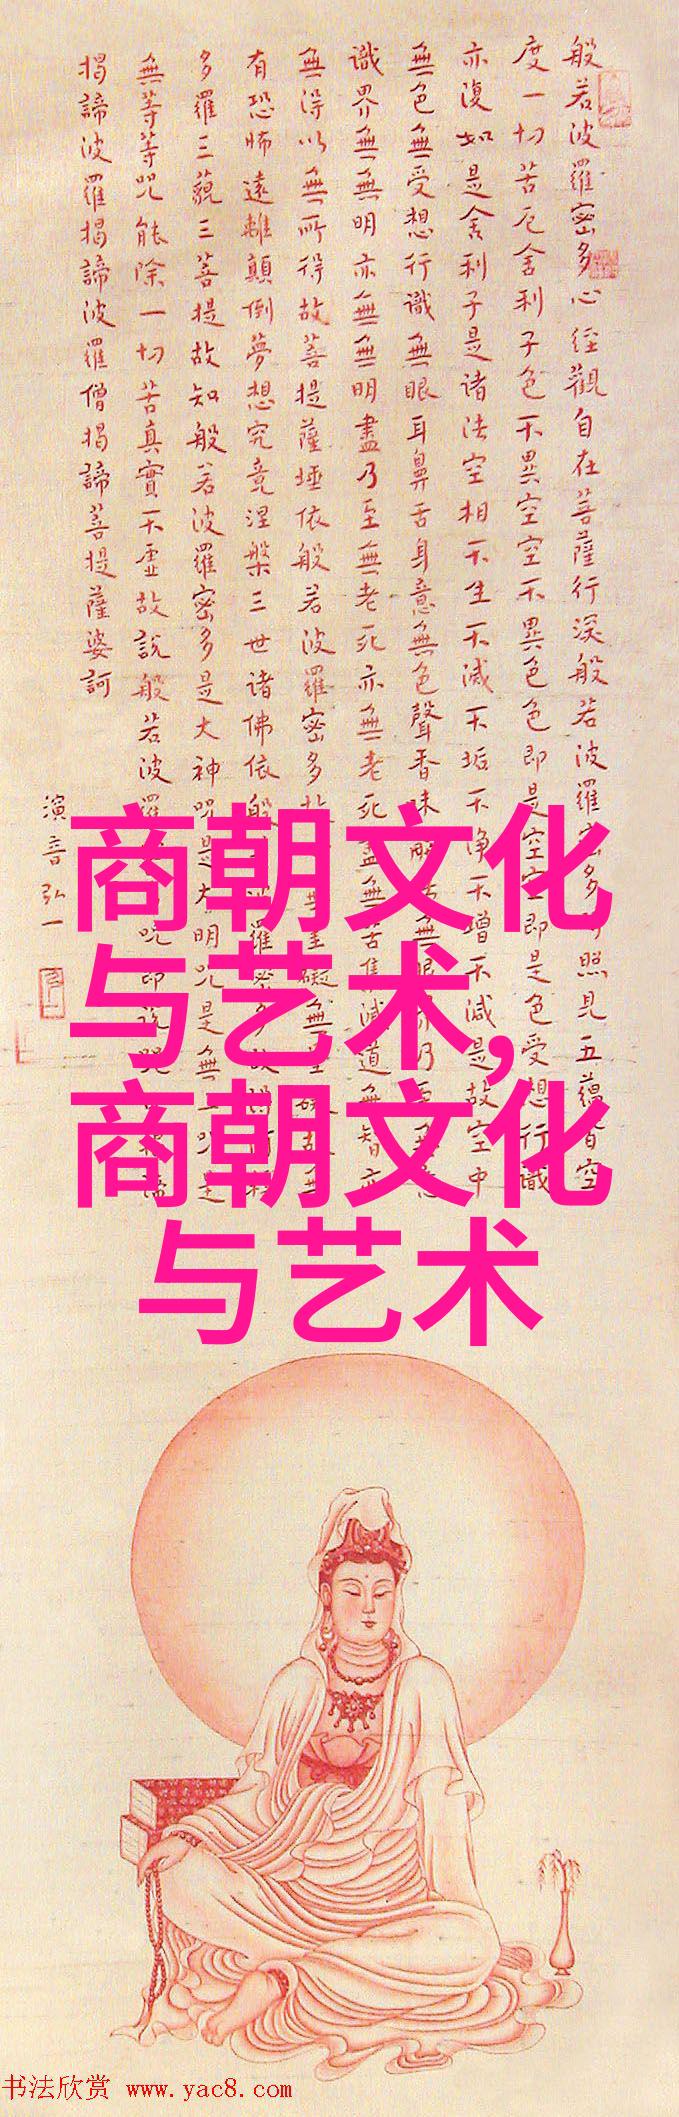 般若波羅蜜多心经觀自在菩薩行深般若波羅蜜多時照見五蘊皆空
度一切苦厄舍利子色不異空空不異色色即是空空即是色受想行識
亦復如是舍利子是诸法空相不生不滅不垢不净不增不減是故空中
無色無受想行識無眼耳鼻舌身意無色聲香味無眼界乃至無意
識界無無明亦無無明盡乃至無老死亦無老死盡無苦集滅道無智亦
無得以無所得故菩提薩埵依般若波羅密多故罣礙無罣礙故無
有恐怖遠離顛倒夢想究竟涅槃三世诸佛依般波羅蜜多故得
多羅三藐三菩提故知般若波羅密多是大神咒是大明咒是無上咒是
無等等咒能除一切苦真實不虚故說般若波羅咒即說咒諦
揭諦波羅揭諦波羅僧揭諦菩提薩婆訶
演音弘一
商朝文化
与艺术,
商朝文化
与艺术
书法欣赏 www.yac8.com